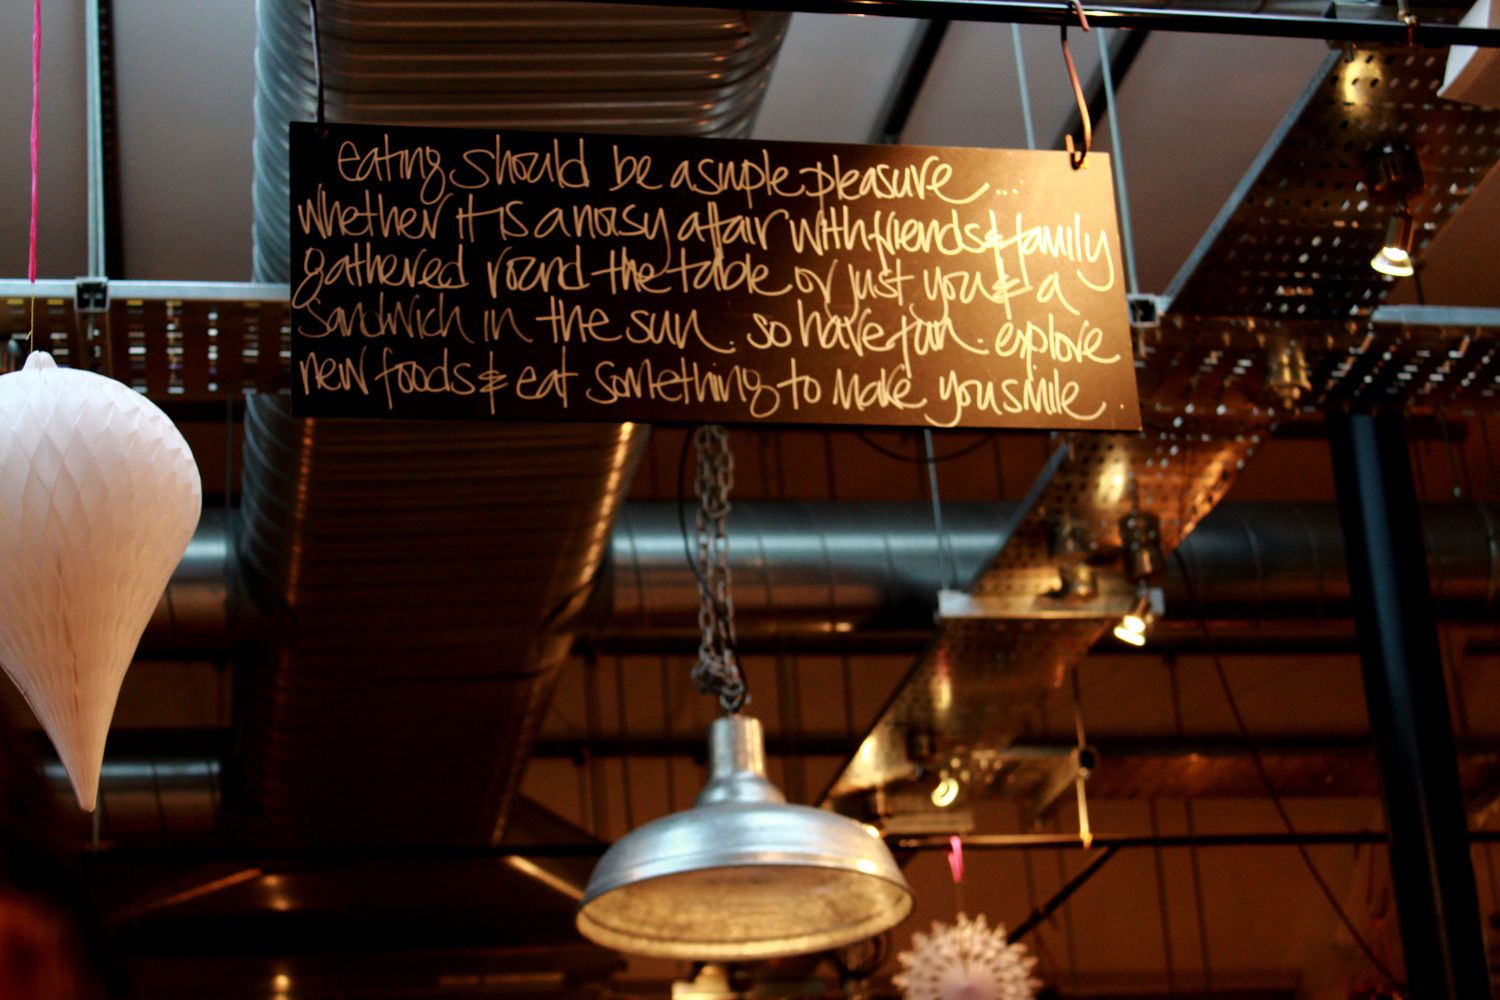 eating should be a simple pleasure...
whether it is a noisy affair with friends & family
gathered round the table or just you & a
sandwich in the sun. so have fun. explore
new foods & eat something to make you smile.